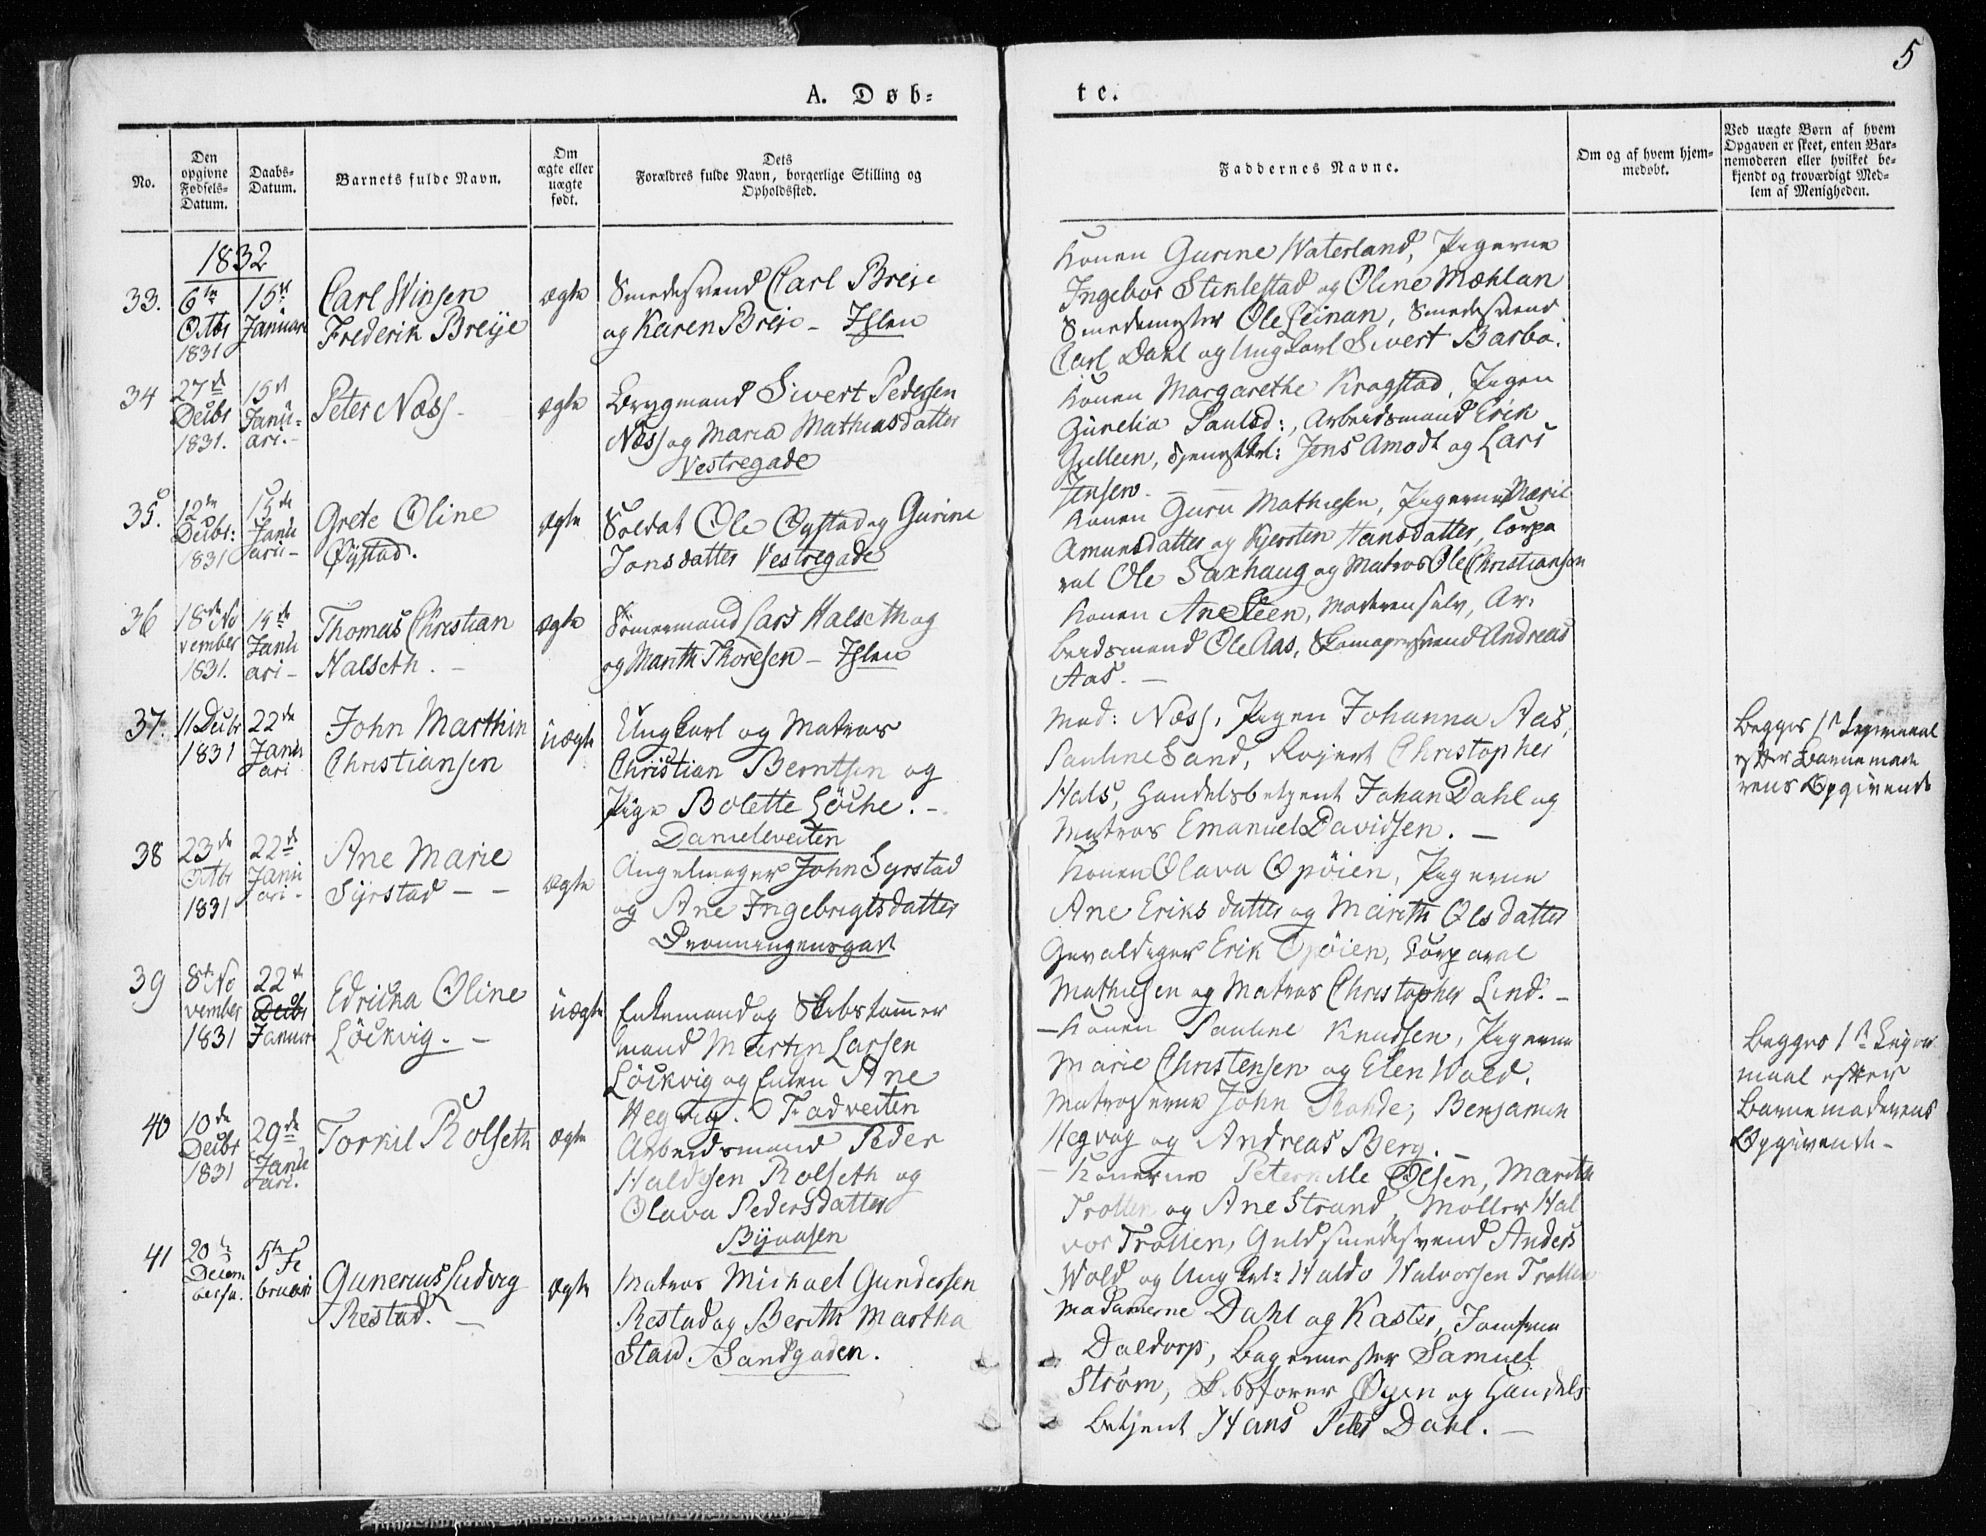 5
A. Døb-
te.
No.
Den opgivne Fødsels-Datum.
Daabs-Datum.
Barnets fulde Navn.
Om ægte eller uægte født.
Dets Forældres fulde Navn, borgerlige Stilling og Opholdssted.
Faddernes Navne.
Om og af hvem hjem-
medøbt.
Ved uægte Børn af hvem
Opgaven er skeet, enten Bar-
nemoderen eller hvilket be-
kjendt og troværdigt Med-
lem af Menigheden.
1832
33.
6te
Octbr
1831
15de
Januari
Carl Winsen
Frederik Breije
ægte
Smedesvend Carl Breje
og Karen Breje - Ihlen
Konen Gurine Waterland, Pigerne
Ingebor Stiklestad og Oline Mæhlan
Smedemester Ole Leinan, Smedesvend
Carl Dahl og Ungkarl Sivert Barbo.
34
27de
Decbr
1831.
15de
Janu-
ari.-
Peter Næss -
ægte
Brygmand Sivert Pedersen
Næss og Maria Mathiasdatter
Vestregade
Konen Margarethe Kragstad, Pigen
Gurelia Paulsd:, Arbeidsmand Erik
Gulleen, Tjenestkrl: Jens Amodt og Lars
Jensen. -
35.
12de
Decbr:
1831
15de
Janu
arii-
Grete Oline
Øystad.
ægte
Soldat Ole Øystad og Gurine
Jonsdatter Vestregade
Konen Guru Mathiesen, Pigerne Marit
Amunsdatter og Kjersten Hansdatter, Corpo
ral Ole Saxhaug og Matros Ole Christianson
36
18de No
vember
1831.
15de
Janu
ari-
Thomas Christian
Halseth. -
ægte
Tømermand Lars Halseth og
og Marith Thoresen - Ihlen
Konen Ane Steen, Moderen selv, Ar-
beidsmand Ole Aas, Skomagersvend Andreas
Aas. -
37.
11 Decbr
1831
22de
Janu
ari
John Marthin
Christiansen
uægte
Ungkarl og Matros
Christian Berntsen og
Pige Bolette Löche. -
Danielsveiten
Mad: Næss, Pigen Johanna Aas,
Pauline Sand, Christopher
Hals, Handelsbetjent Johan Dahl og
Matros Emanuel Davidsen. -
Begges 1ste Leiermaal
efter Barnemode
rens Opgivende
38
23de
Octbr
1831
22de
Janu
ari-
Ane Marie
Syrstad - -
ægte
Angelmager John Syrstad
og Ane Ingebrigtsdatter
Dronningensgade
Konen Olava Opöien, Pigerne
Ane Eriksdatter og Mareth Olsdatter
Gevaldiger Erik Opöien, Corporal
Mathiesen og Matros Christopher Lind. -
39
8de No
vember
1831
22de
Decbr
Januar
Edricka Oline
Löckvig. -
uægte
Enkemand og Skibstømmer
mand Martin Larsen
Löckvig og Enken Ane
Hegvig. Fadveiten
- Konen Pauline Knudsen, Pigerne
Marie Christensen og Elen Wold.
Matroserne John Rohde, Benjamin
Hegvag og Andreas Berg. -
Begges 1ste Leier
maal efter
Barnemoderens
Opgivende-
40
10de
Decbr
1831
29de
Janu
ari.
Torkil Rolseth
ægte
Arbeidsmand Peder
Haldosen Rolseth og
Olava Pedersdatter
Byaasen
- Konerne Peternille Olsen, Marith
Trollen og Ane Strand, Møller Hal
vor Trollen, Guldsmedesvend Anders
Wold og Ungkrl: Haldo Halvorsen Trollen
41
20de
Decem
5te Fe
bruari
Gunerius Ludvig
Restad. -
ægte
Matros Michael Gundersen
Restad og Berith Martha
Stad. Sandgaden.
Madamerne Dahl og Kaster, Jomfrue
Daldorp, Bagermester Samuel
Strøm, Skibsfører Øyen og Handels
Betjent Hans Peter Dahl. -